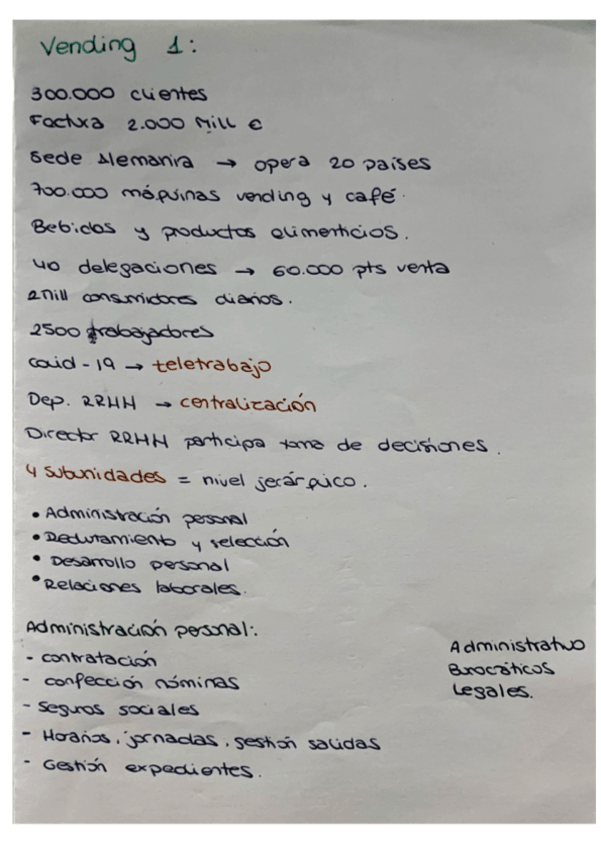 Vending 1:
300.000 clientes
Factura 2.000 Mill €
Sede Alemania → opera 20 países
700.000 máquinas vending y café.
Bebidas y productos alimenticios.
40 delegaciones → 60.000 pts venta
2mill consumidores diarios.
2500 trabajadores
covid-19 → teletrabajo
Dep. RRHH → centralización
Director RRHH participa toma de decisiones.
4 subunidades = nivel jerárquico.
• Administración personal
• Reclutamiento y selección
• Desarrollo personal
• Relaciones laborales.
Administración personal:
- contratación
- confección nóminas
- seguros sociales
- Horarios, jornadas, gestión salidas
- Gestión expedientes.
Administrativo
Burocráticos
Legales.